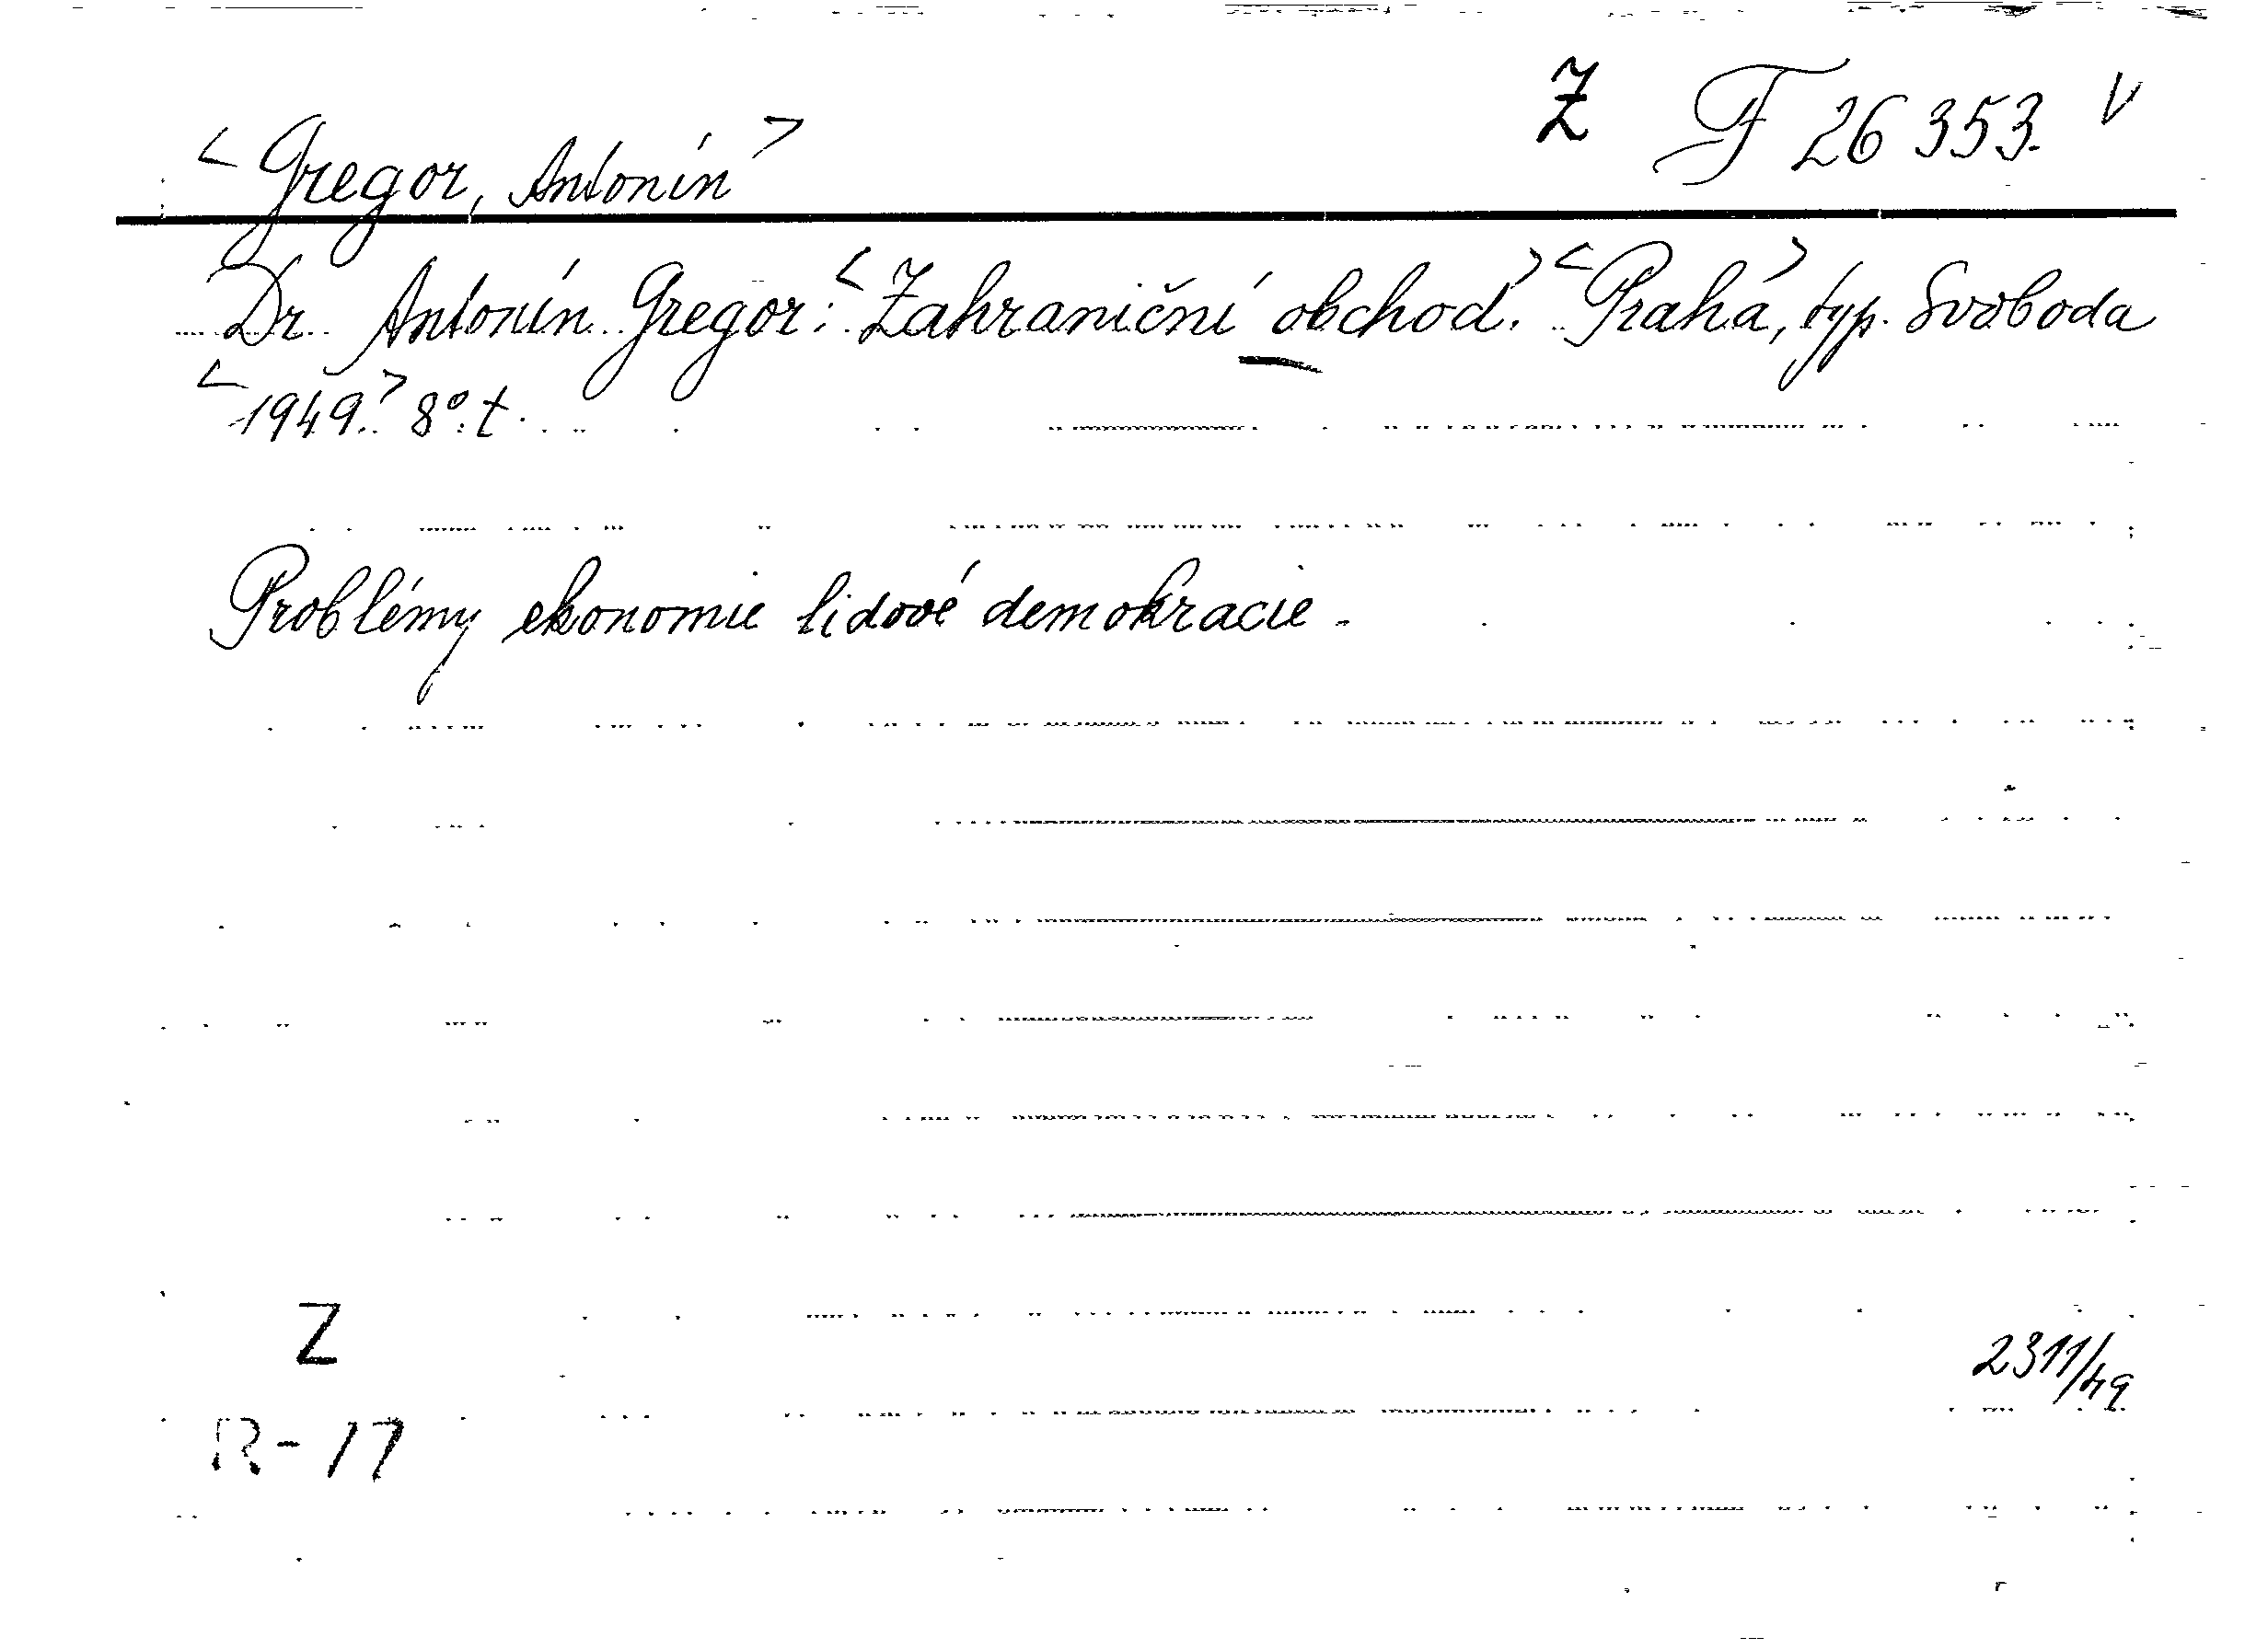 Z F 26 353. V
<Gregor, Antonín>
Dr. Antonín Gregor: <Zahraniční obchod.> <Praha>, typ. Svoboda
<1949.> 8°. t.
Problémy ekonomie lidové demokracie.
Z
2311/49
R-17